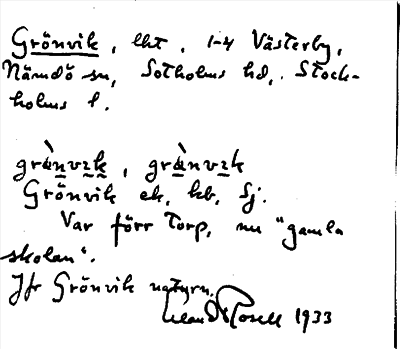 Grönvik, lht, 1-4 Västerby,
Nämdö sn, Sotholms hd, Stock-
holms l.
grὰnvɪk, grὰnvɪk
Grönvik ek, kb, Sj.
Var förr torp, nu "gamla
skolan".
Jfr Grönvik naturn.
Rosell 1933